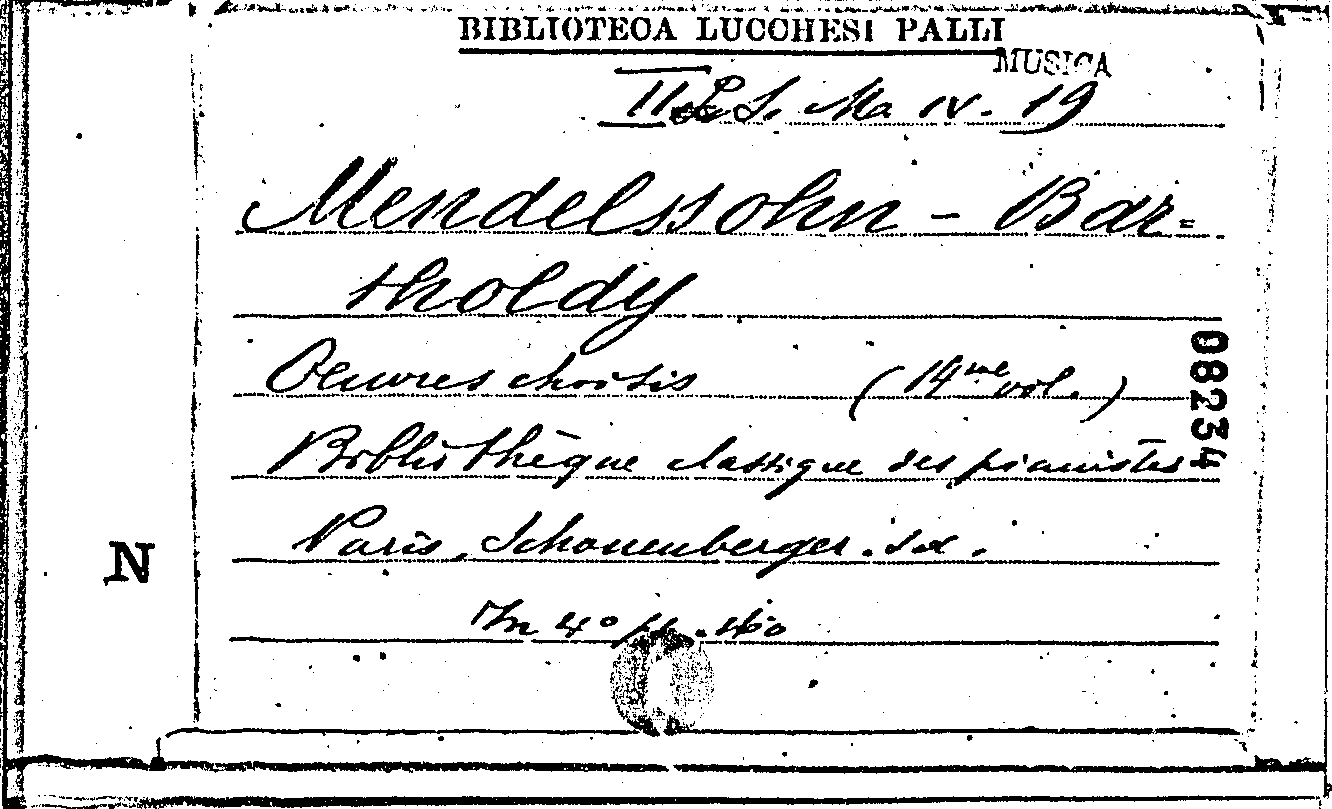 BIBLIOTECA LUCCHESI PALLI
MUSICA
II L. S. Ma IV. 19
Mendelssohn - Bar=
tholdy
Oeuvres choisis (14me vol.)
Bibliothèque classique des pianistes
Paris, Schonenberger. s.d.
In 4o pp.
08234
N